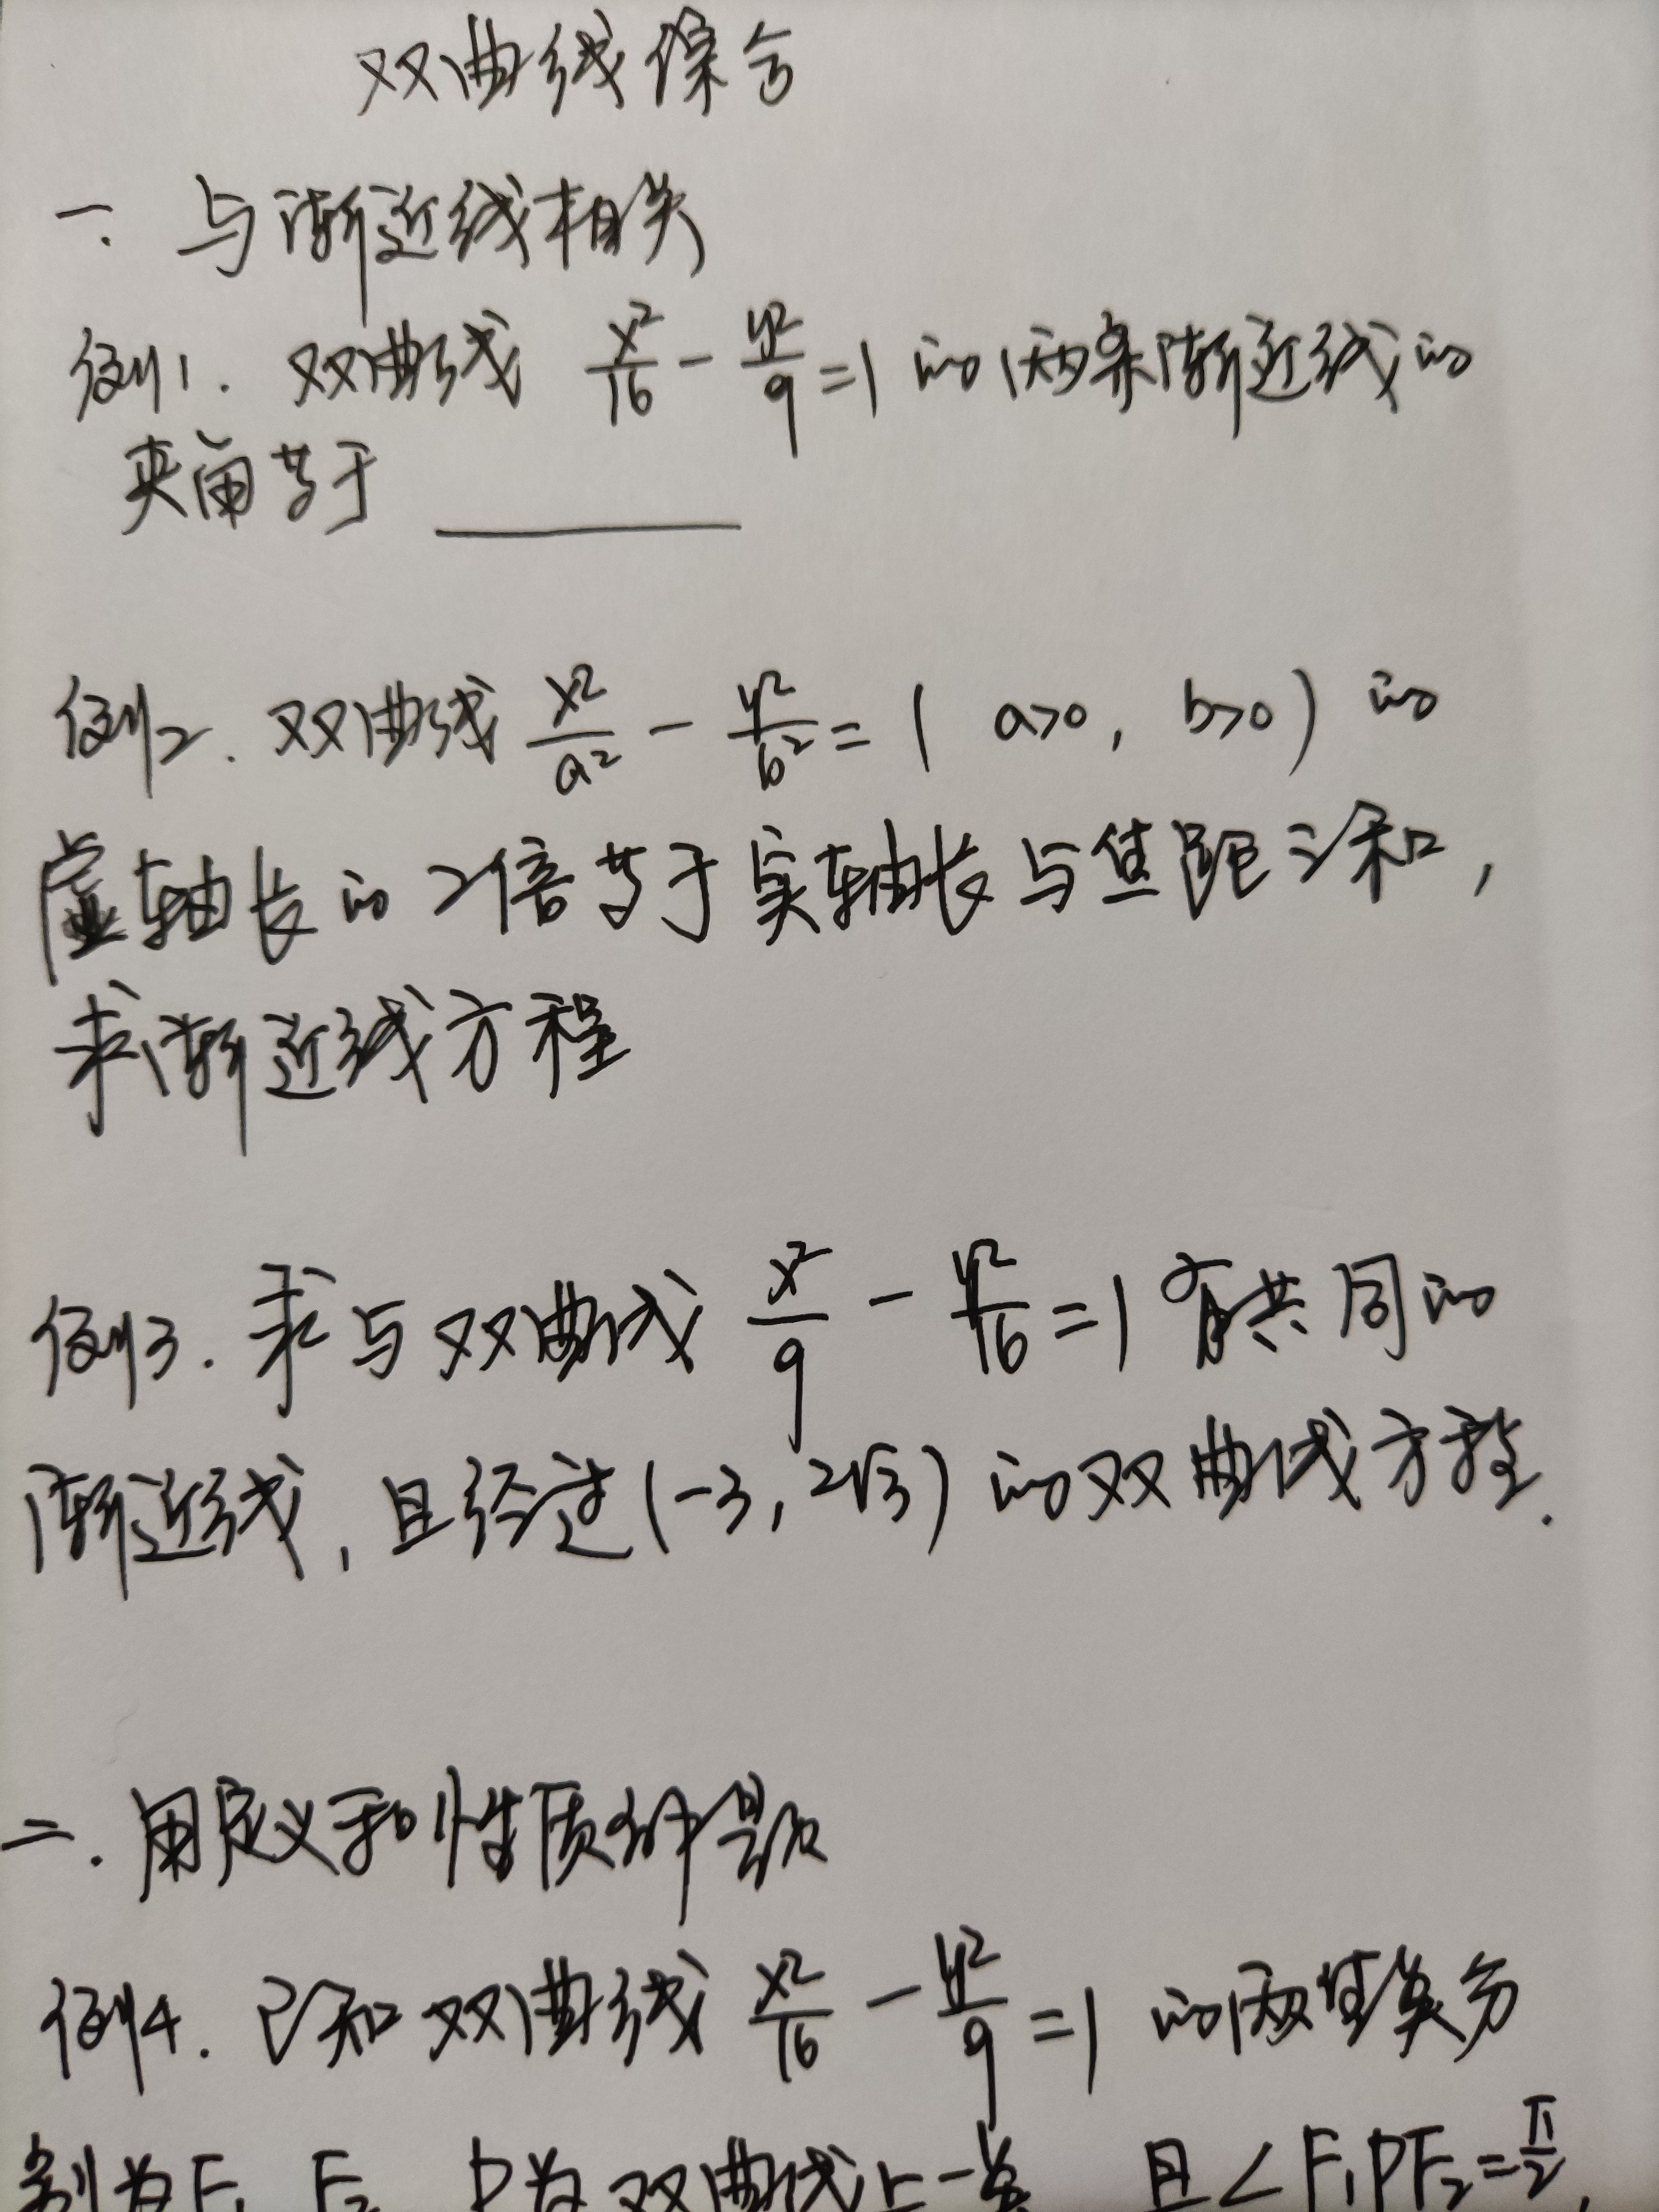 双曲线综合
一. 与渐近线相关
例1. 双曲线 x²/16 - y²/9 = 1 的两条渐近线的
夹角等于
例2. 双曲线 x²/a² - y²/b² = 1 ( a>0, b>0 ) 的
虚轴长的2倍等于实轴长与焦距之和,
求渐近线方程
例3. 求与双曲线 x²/9 - y²/16 = 1 有共同的
渐近线, 且经过(-3, 2√3) 的双曲线方程.
二. 用定义和性质解题
例4. 已知双曲线 x²/16 - y²/9 = 1 的两焦点分
别为F₁ F₂ P为双曲线上一点 且∠F₁PF₂=π/2,